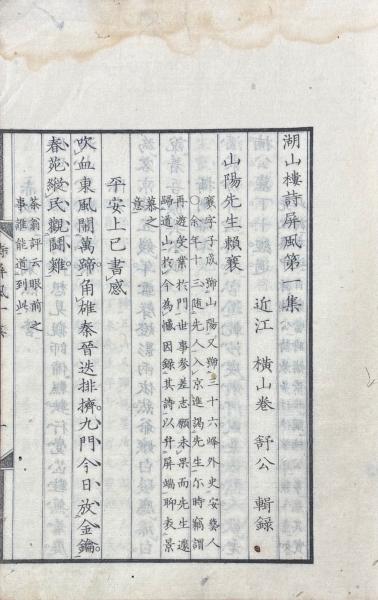 湖山樓詩屏風第一集
近江 橫山卷 舒公 輯録
山陽先生賴襄
襄字子成號山陽又號三十六峰外史安藝人
○余年十三隨先人入京進謁先生尓時竊謂
再遊受業於門世事參差志願未果而先生遽
歸道山於今為憾因錄其詩以弁屏端聊表景
慕之意
平安上巳書感
吹血東風鬧萬蹄角雄秦晉迭排擠九門今日放金鑰
春苑縱民觀鬪雞
茶翁評云眼前之
事誰能道到此